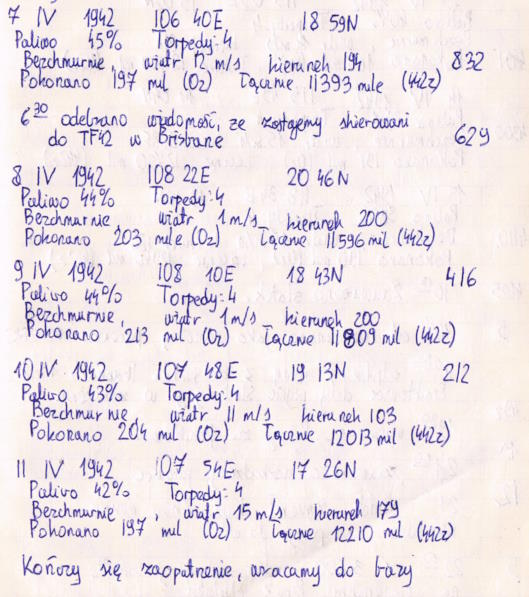 7 IV 1942 106 40E 18 59N
Paliwo 45% Torpedy: 4
Bezchmurnie, wiatr 12 m/s kierunek 194 832
Pokonano 197 mil (Oz) Łącznie 11393 mile (442z)
6³⁰ odebrano wiadomość, że zostajemy skierowani
do TF42 w Brisbane 629
8 IV 1942 108 22E 20 46N
Paliwo 44% Torpedy: 4
Bezchmurnie wiatr 1 m/s kierunek 200
Pokonano 203 mile (Oz) Łącznie 11596 mil (442z)
9 IV 1942 108 10E 18 43N 416
Paliwo 44% Torpedy: 4
Bezchmurnie, wiatr 1 m/s kierunek 200
Pokonano 213 mil (Oz) Łącznie 11809 mil (442z)
10 IV 1942 107, 48E 19 13N 212
Paliwo 43% Torpedy: 4
Bezchmurnie, wiatr 11 m/s kierunek 103
Pokonano 204 mil (Oz) Łącznie 12013 mil (442z)
11 IV 1942 107 54E 17 26N
Paliwo 42% Torpedy: 4
Bezchmurnie, wiatr 15 m/s kierunek 179
Pokonano 197 mil (Oz) Łącznie 12210 mil (442z)
Kończy się zaopatrzenie, wracamy do bazy